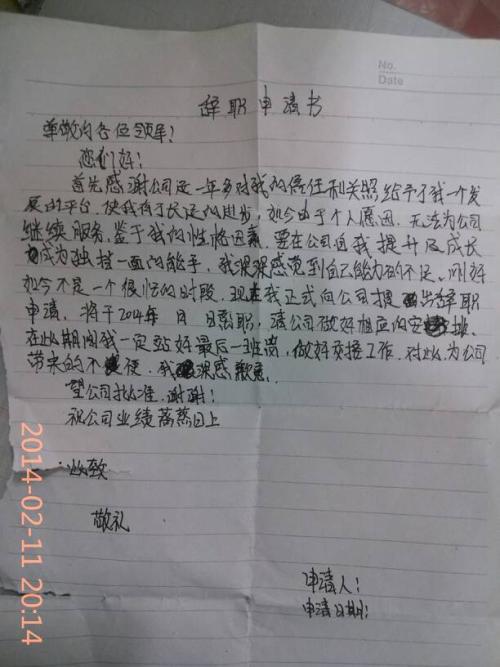 No.
Date
辞职申请书
尊敬的各位领导!
您们好!
首先感谢公司这一年多对我的信任和关照给予了我一个发
展的平台,使我有了长足的进步,如今由于个人原因,无法为公司
继续服务,鉴于我的性格因素,要在公司自我提升及成长
成为独挡一面的能手,我深深感觉到自己能力的不足。刚好
如今不是一个很忙的时段,现在我正式向公司提出辞职
申请,将于2014年 月 日离职,请公司做好相应的安排,
在此期间我一定站好最后一班岗,做好交接工作。对此为公司
带来的不便,我深感歉意。
望公司批准,谢谢!
祝公司业绩蒸蒸日上
此致
敬礼
申请人:
申请日期:
2014-02-11 20:14